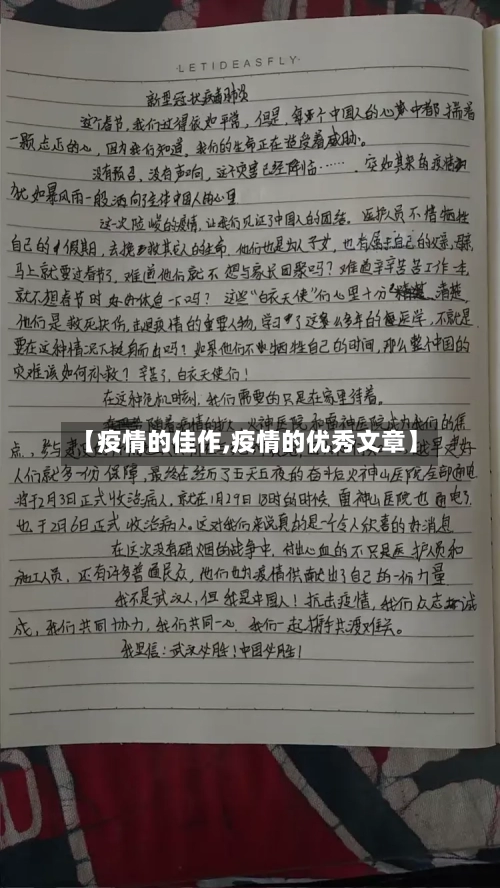 ·LETIDEASFLY·
新型冠状病毒肺炎
这个春节，我们过得依如平常，但是，每个中国人的心里中都揣着
一颗忐忑的心，因为我们知道，我们的生命正在遭受着威胁。
没有预告，没有声响，这个灾害已经降临……，突如其来的疫情
犹如暴风雨一般，洒向了全体中国人的心里
这一次险峻的疫情，让我们见证了中国人的团结。医护人员不惜牺牲
自己的假期，去挽救其它人的生命，他们也是为人子女，也有属于自己的父亲，母亲，
马上就要过春节了，难道他们就不想与家长团聚吗？难道辛辛苦苦工作一年，
就不想春节时好好休息一下吗？这些"白衣天使"们心里十分清楚，
他们是救死扶伤，击退疫情的重要人物，学习了这么多年的医学，不就是
要在这种情况下挺身而出吗？如果他们不牺牲自己的时间，那么整个中国的
灾难该如何补救？辛苦了，白衣天使们！
在这种危机时刻，我们需要的只是在家里待着。
随着疫情的 火神山医院和雷神山医院成为我们的焦
点，
【疫情的佳作,疫情的优秀文章】
人们就多一份保障，最终在经历了五天五夜的奋斗后火神山医院全部通电
将于2月3日正式收治病人。就在1月29日18时的时候，雷神山医院也通电了，
也于2日6日正式收治病人。这对我们来说真的是一个令人欣喜的好消息
在这次没有硝烟的战争中，付出心血的不只是医护人员和
施工人员，还有许多普通民众，他们也为疫情供献出了自己的一份力量
我不是武汉人，但我是中国人！抗击疫情，我们众志成
成，我们共同协力，我们共同一心，我们一起携手共渡难关。
我坚信：武汉必胜！中国必胜！